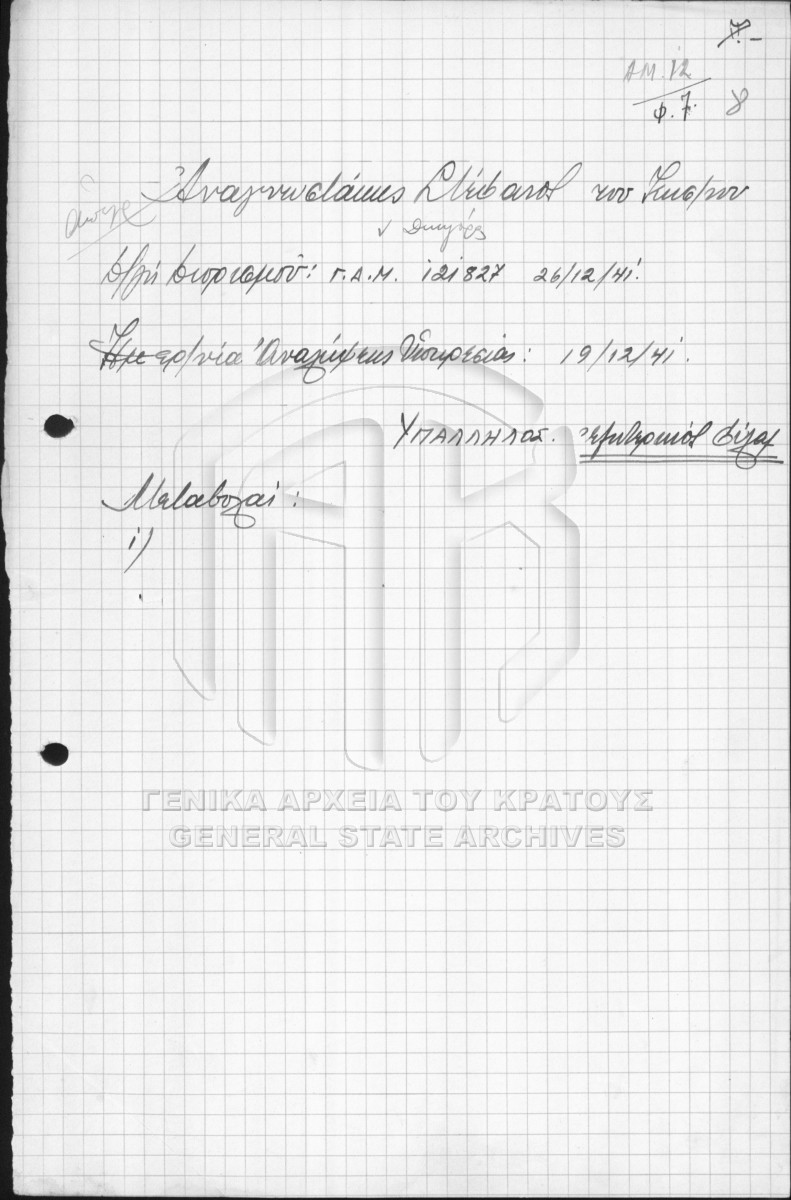 7.-
ΑΜ. 12
φ. 7. 8
Ἀναγνωστάκης Στέφανος του
Δ/γή Διορισμοῦ: Γ.Α.Μ. 121827 26/12/41.
Ἡμερ/νία Ἀναλήψεως Ὑπηρεσίας: 19/12/41.
ΥΠΑΛΛΗΛΟΣ. Ἐξωτερικός
Μεταβολαί:
1)
ΓΕΝΙΚΑ ΑΡΧΕΙΑ ΤΟΥ ΚΡΑΤΟΥΣ
GENERAL STATE ARCHIVES